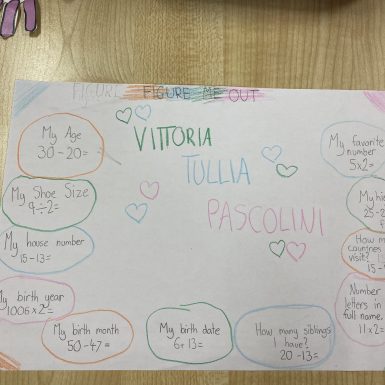 FIGURE FIGURE ME OUT
VITTORIA
TULLIA
PASCOLINI
My Age
30-20=
My Shoe Size
9÷2=
My house number
15-13=
My birth year
1006x2=
My birth month
50-47=
My birth date
6+13=
How many siblings
I have?
20-13=
My favorite
number
5x2=
My hei
25-
How ma
countries
visit?
15-
Number
letters in
full name.
11x2=